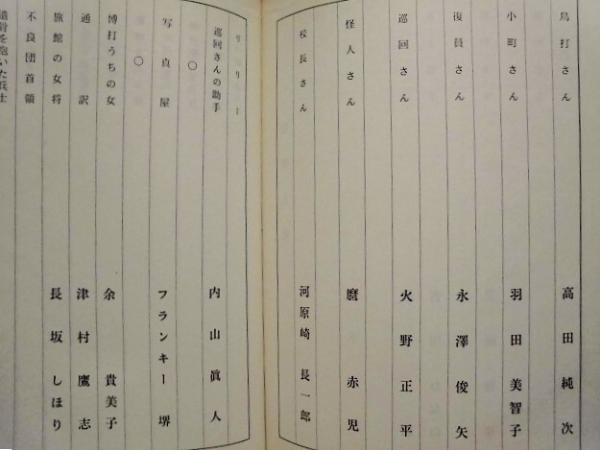 鳥打さん 高田純次
小町さん 羽田美智子
復員さん 永澤俊矢
巡回さん 火野正平
怪人さん 麿赤児
校長さん 河原崎長一郎
リリー
巡回さんの助手 内山眞人
〇
写真屋 フランキー堺
〇
博打うちの女 余貴美子
通訳 津村鷹志
旅館の女将 長坂しほり
不良団首領
遺骨を抱いた兵士